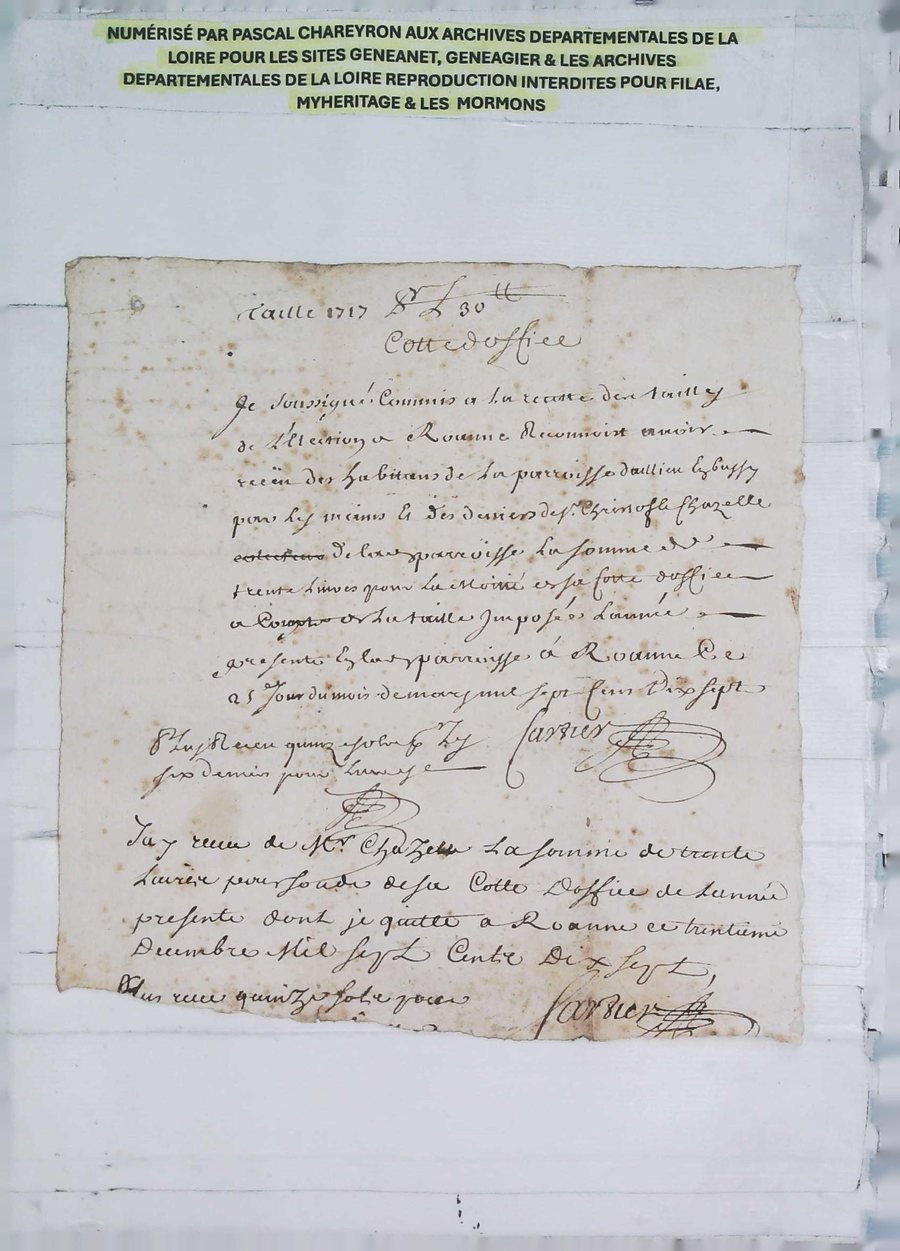 NUMÉRISÉ PAR PASCAL CHAREYRON AUX ARCHIVES DEPARTEMENTALES DE LA
LOIRE POUR LES SITES GENEANET, GENEAGIER & LES ARCHIVES
DEPARTEMENTALES DE LA LOIRE REPRODUCTION INTERDITES POUR FILAE,
MYHERITAGE & LES MORMONS
Taille 1717 30 ₶
Cotte doffice
Je soussigné Commis a la recette des tailles
de L'Election de Roanne Reconnoist avoir
receu des habitans de la parroisse daillieu Et bussy
par les mains Et des deniers de Sr. Christofle Chazelle
de lad parroisse La somme de
trente Livres pour La Moitié de sa Cotte doffice
a de La taille Imposée Lannée
presente En lad parroisse à Roanne Ce
25 Jour du mois de mars mil sept Cens Dix sept
Cartier
receu quinze sols
six deniers pour
Jay receu de Mr. Chazelle La somme de trente
Livres pour solde de sa Cotte Doffice de Lannée
presente dont je quitte a Roanne ce trentieme
Decembre Mil sept Cents Dix sept,
Plus receu quinze sols pour
Cartier